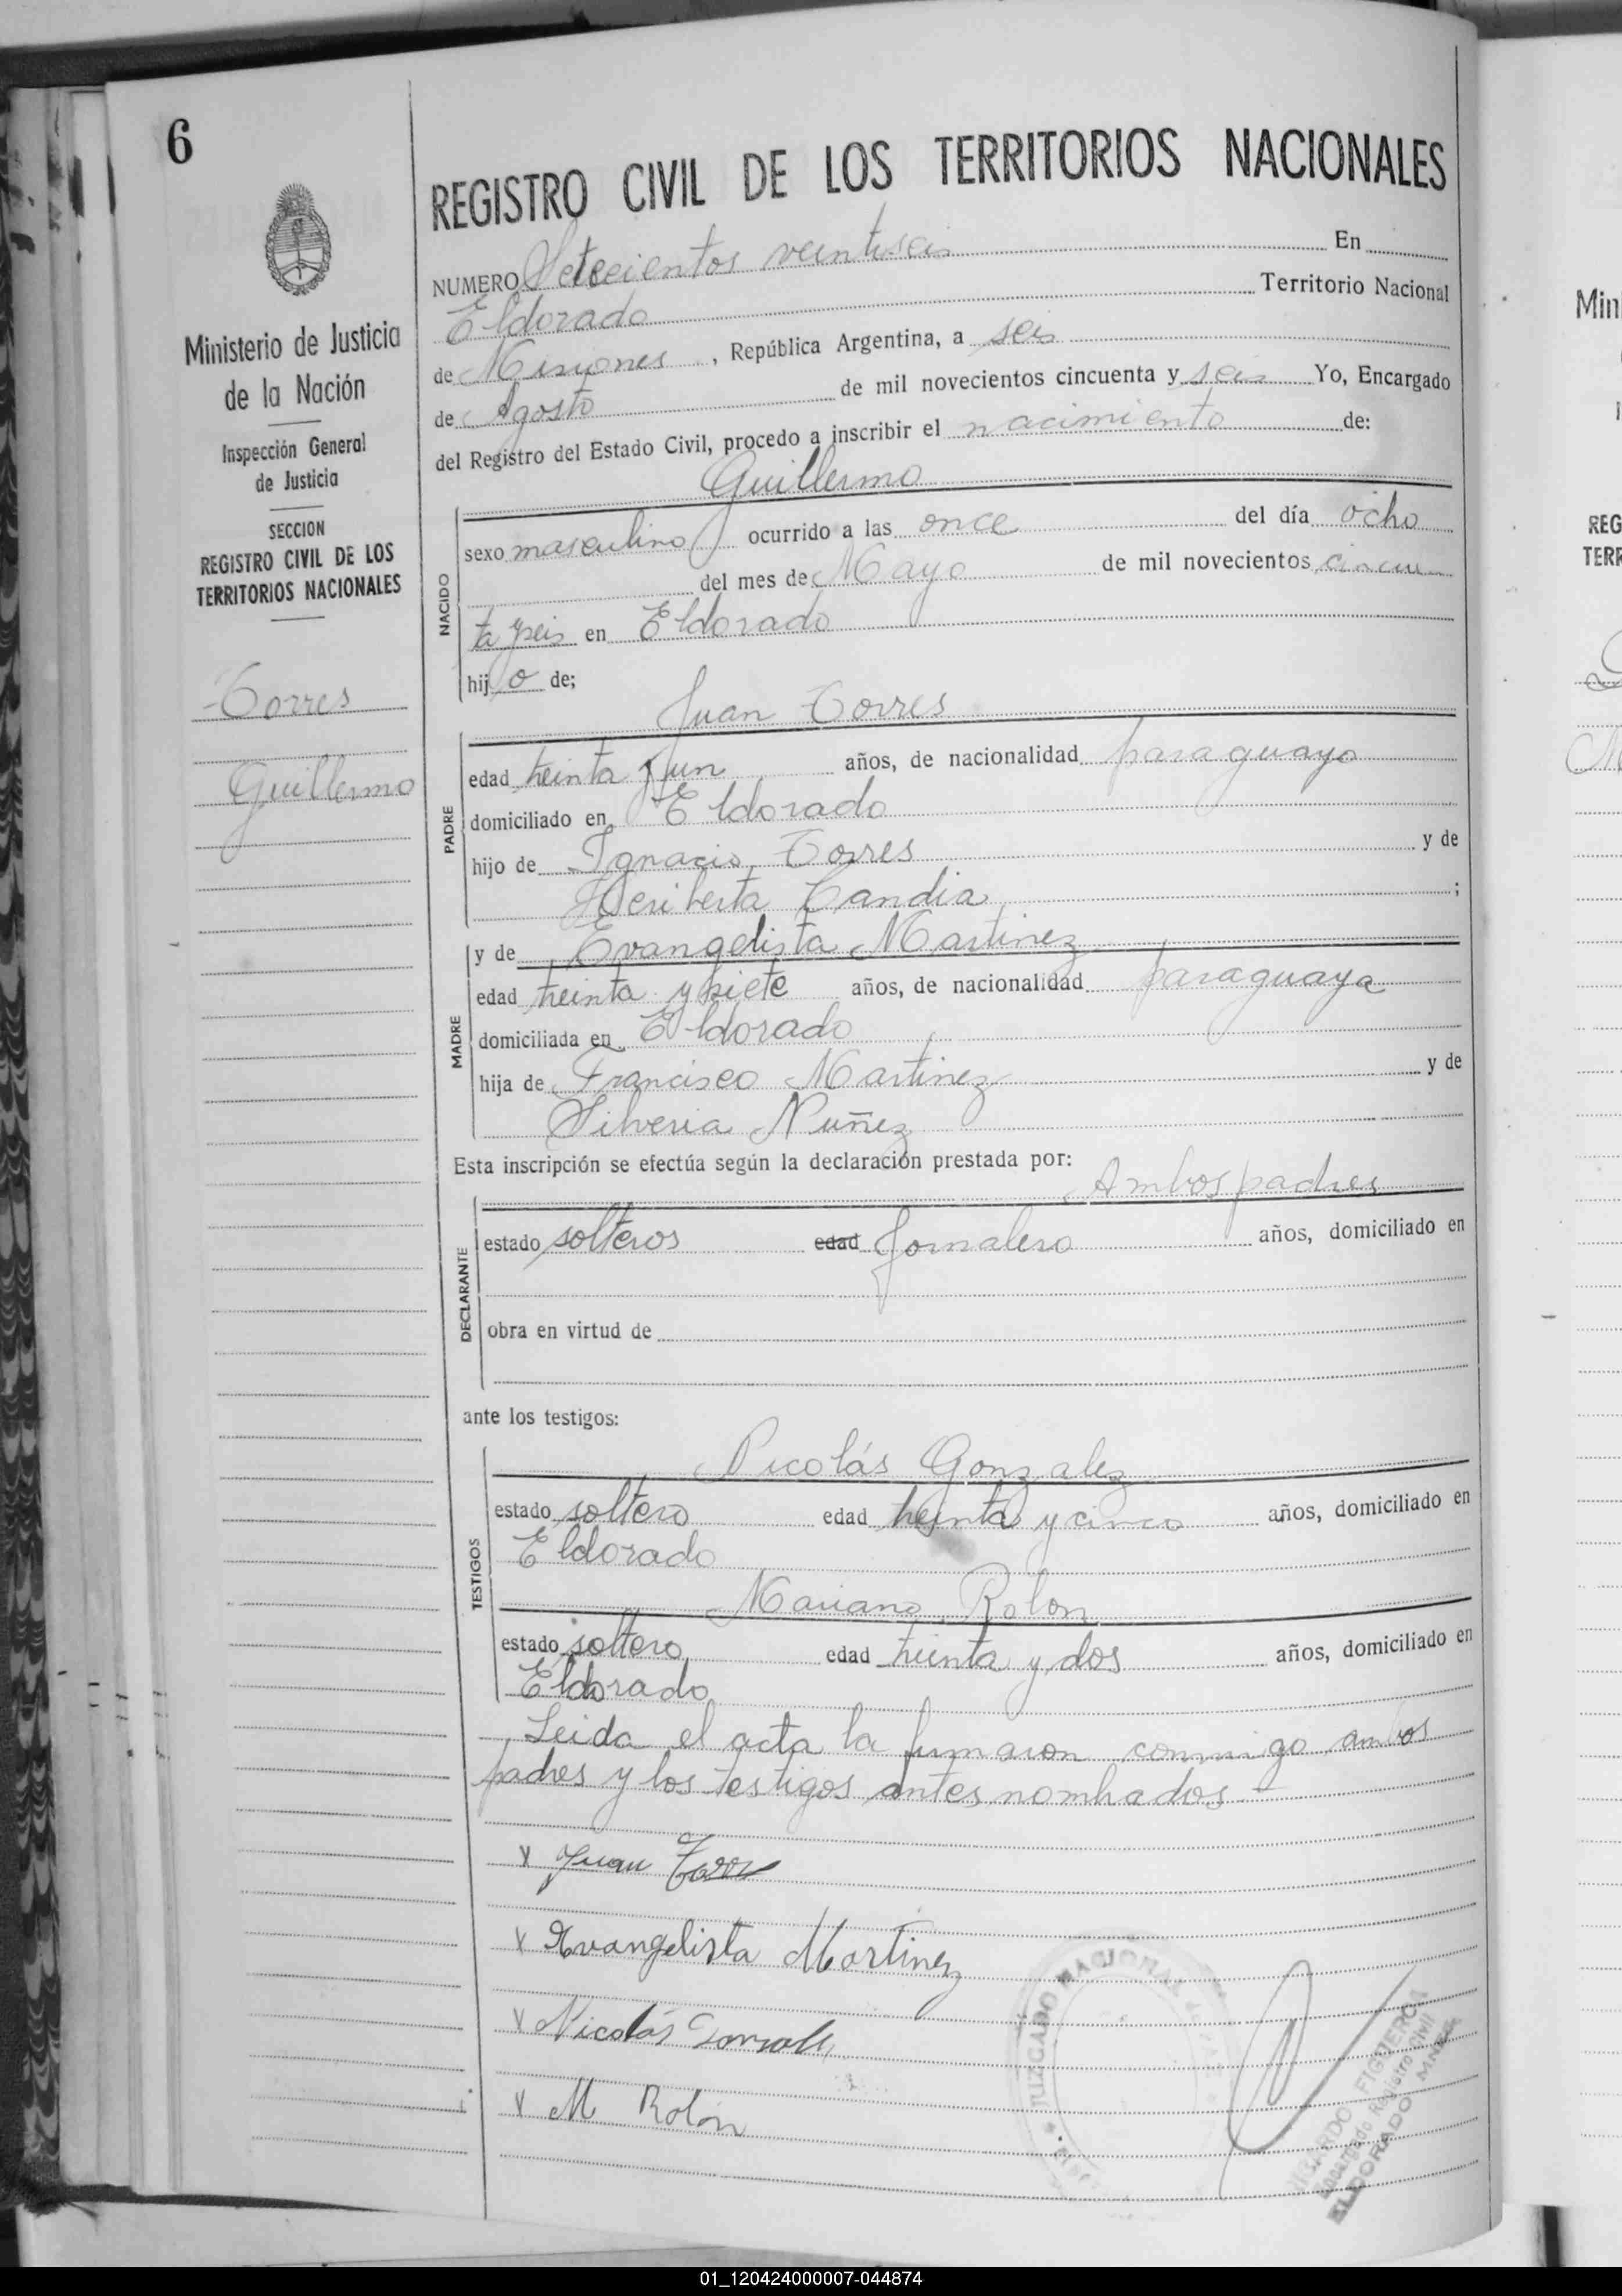 6
REGISTRO CIVIL DE LOS TERRITORIOS NACIONALES
Ministerio de Justicia
de la Nación
Inspección General
de Justicia
SECCION
REGISTRO CIVIL DE LOS
TERRITORIOS NACIONALES
Torres
Guillermo
NUMERO Setecientos veintiseis En
Eldorado Territorio Nacional
de Misiones, República Argentina, a seis
de Agosto de mil novecientos cincuenta y seis Yo, Encargado
del Registro del Estado Civil, procedo a inscribir el nacimiento de:
Guillermo
NACIDO
sexo masculino ocurrido a las once del día ocho
del mes de Mayo de mil novecientos cincuen
ta y seis en Eldorado
hijo de;
Juan Torres
PADRE
edad treinta y un años, de nacionalidad paraguayo
domiciliado en Eldorado
hijo de Ignacio Torres y de
Heriberta Candia ;
y de Evangelista Martinez
MADRE
edad treinta y siete años, de nacionalidad paraguaya
domiciliada en Eldorado
hija de Francisco Martinez y de
Silveria Nuñez
Esta inscripción se efectúa según la declaración prestada por:
Ambos padres
DECLARANTE
estado solteros edad Jornalero años, domiciliado en
obra en virtud de
ante los testigos:
Nicolás Gonzalez
TESTIGOS
estado soltero edad treinta y cinco años, domiciliado en
Eldorado
Mariano Rolon
estado soltero edad treinta y dos años, domiciliado en
Eldorado
Leida el acta la firmaron conmigo ambos
padres y los testigos antes nombrados
x Juan Torres
x Evangelista Martinez
x Nicolás Gonzalez
x M Rolón
JUZGADO NACIONAL
FIGUEROA
Encargado Registro Civil
ELDORADO
Min
REG
TERR
01_120424000007-044874